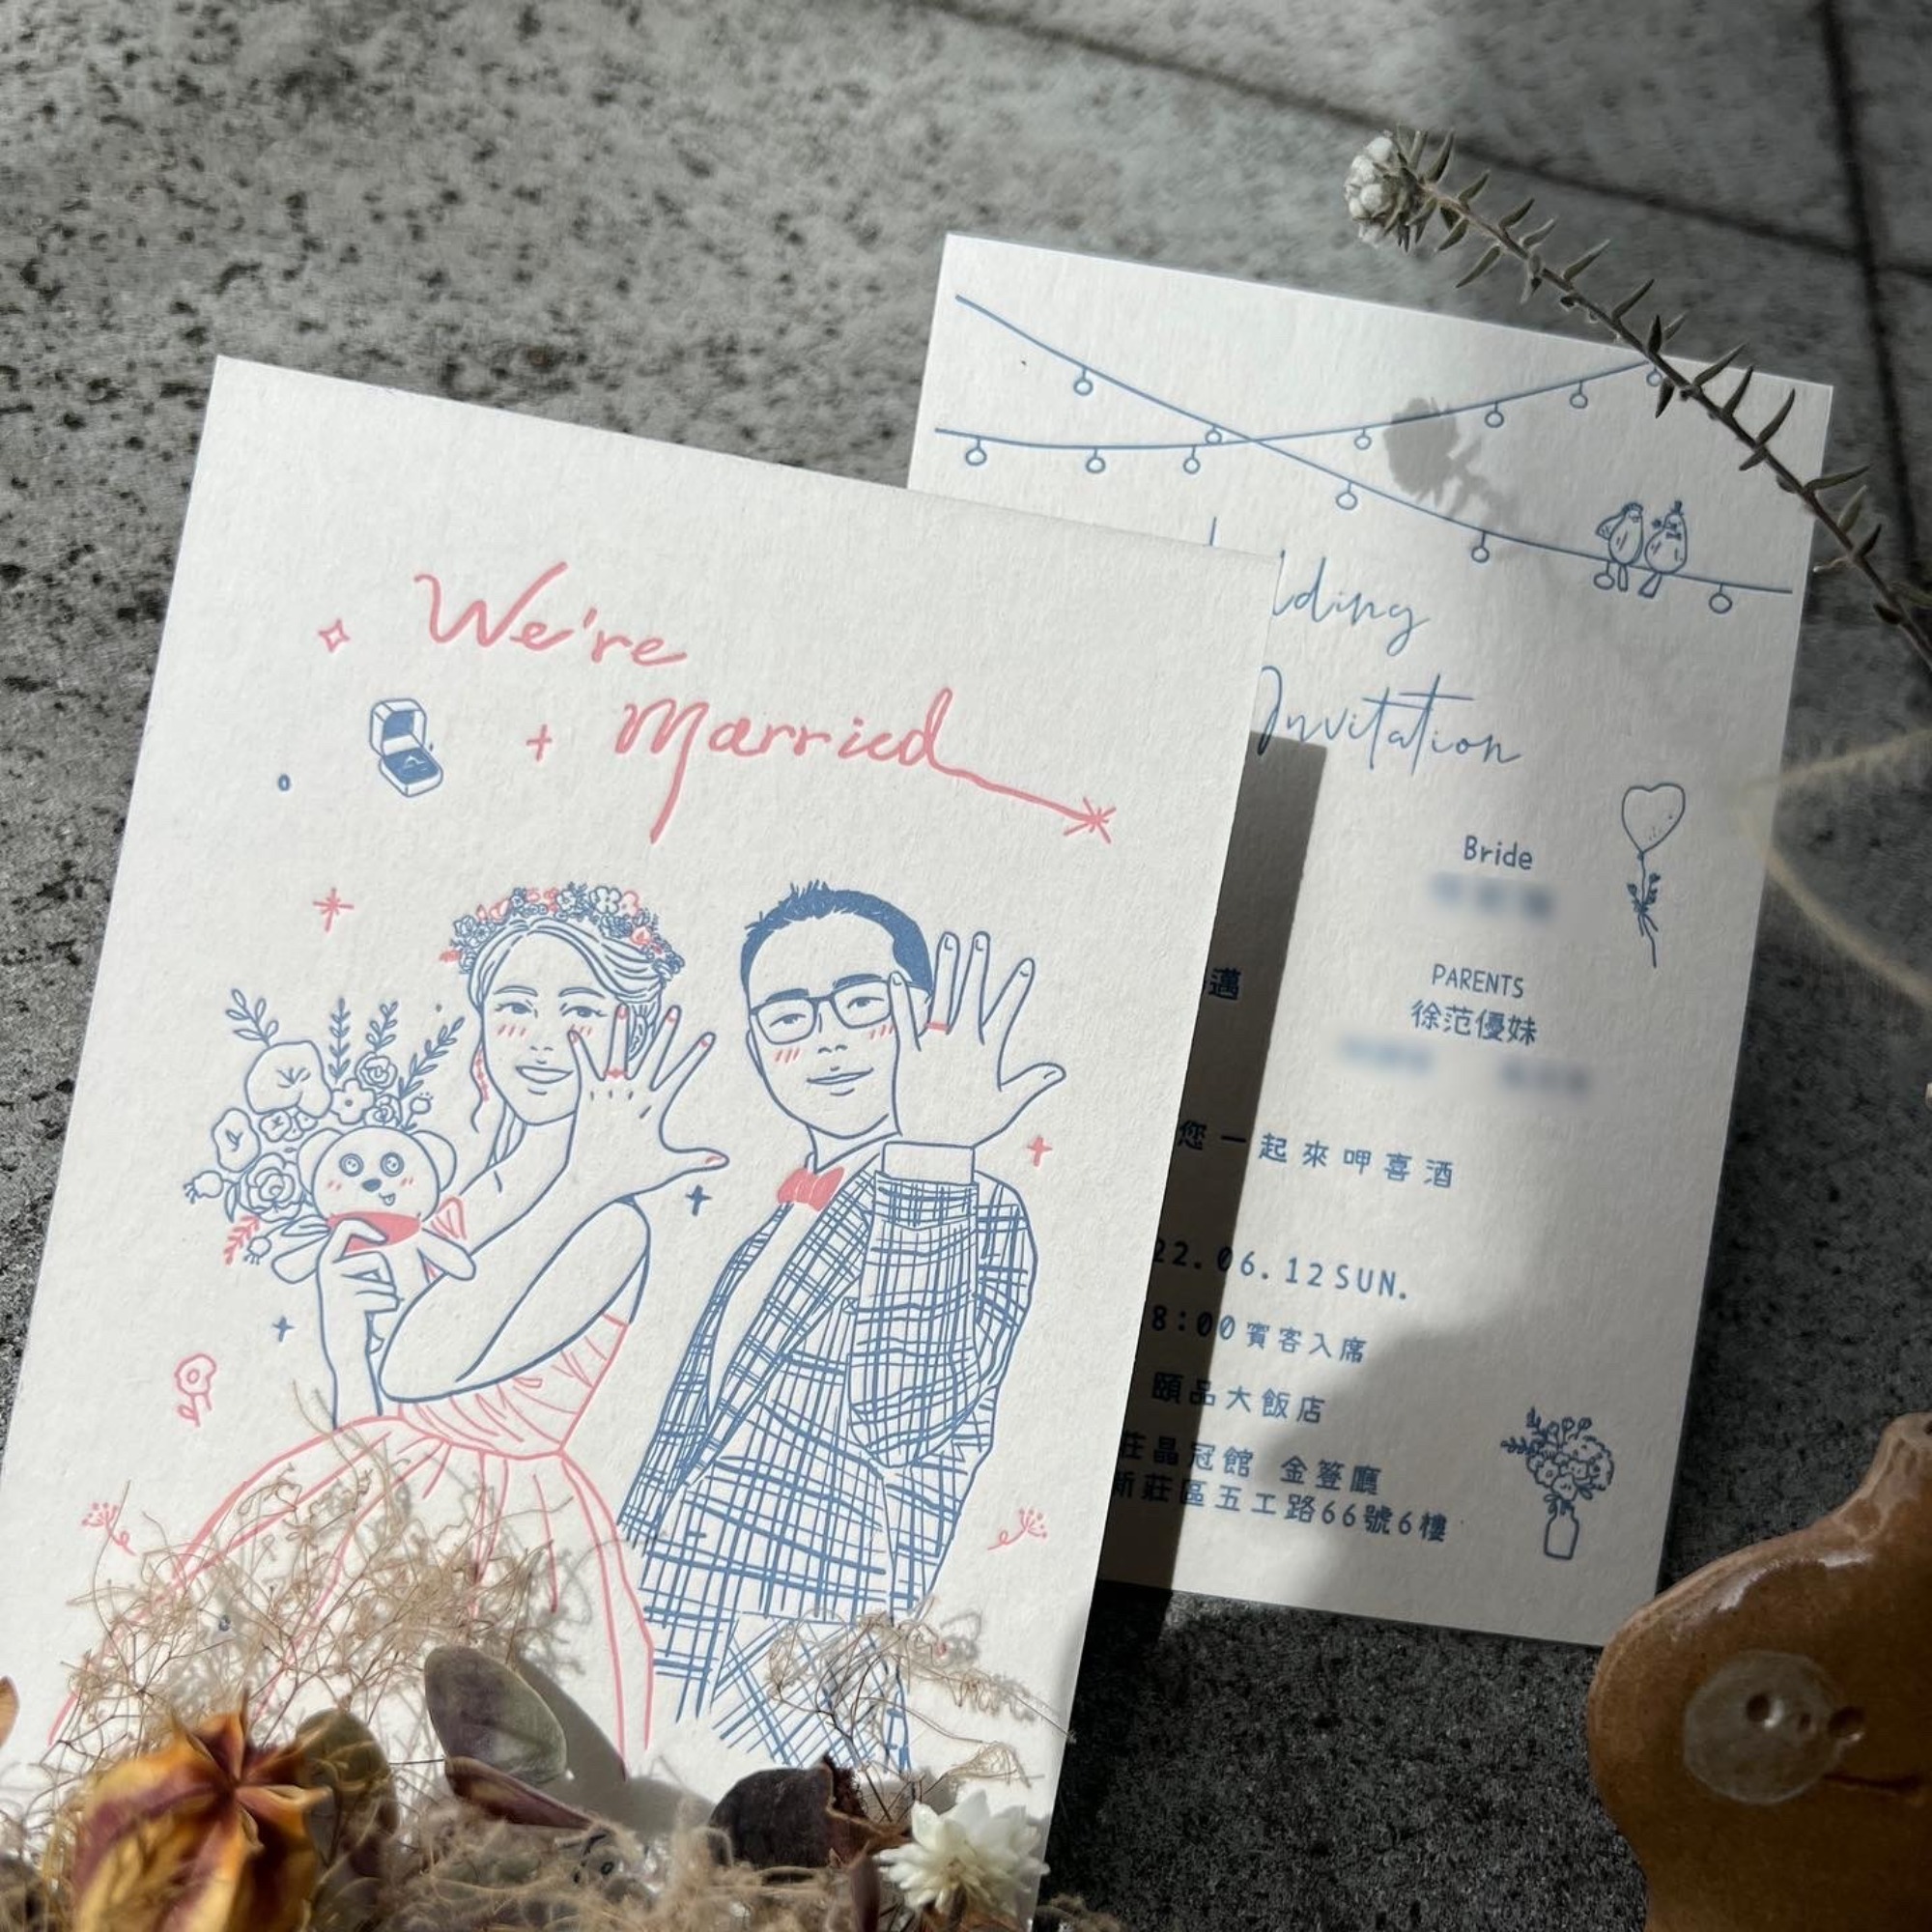 We're
Married
Invitation
Bride
PARENTS
徐范優妹
您一起來呷喜酒
22.06.12 SUN.
8:00 賓客入席
頤品大飯店
莊晶冠館 金簦廳
新莊區五工路66號6樓